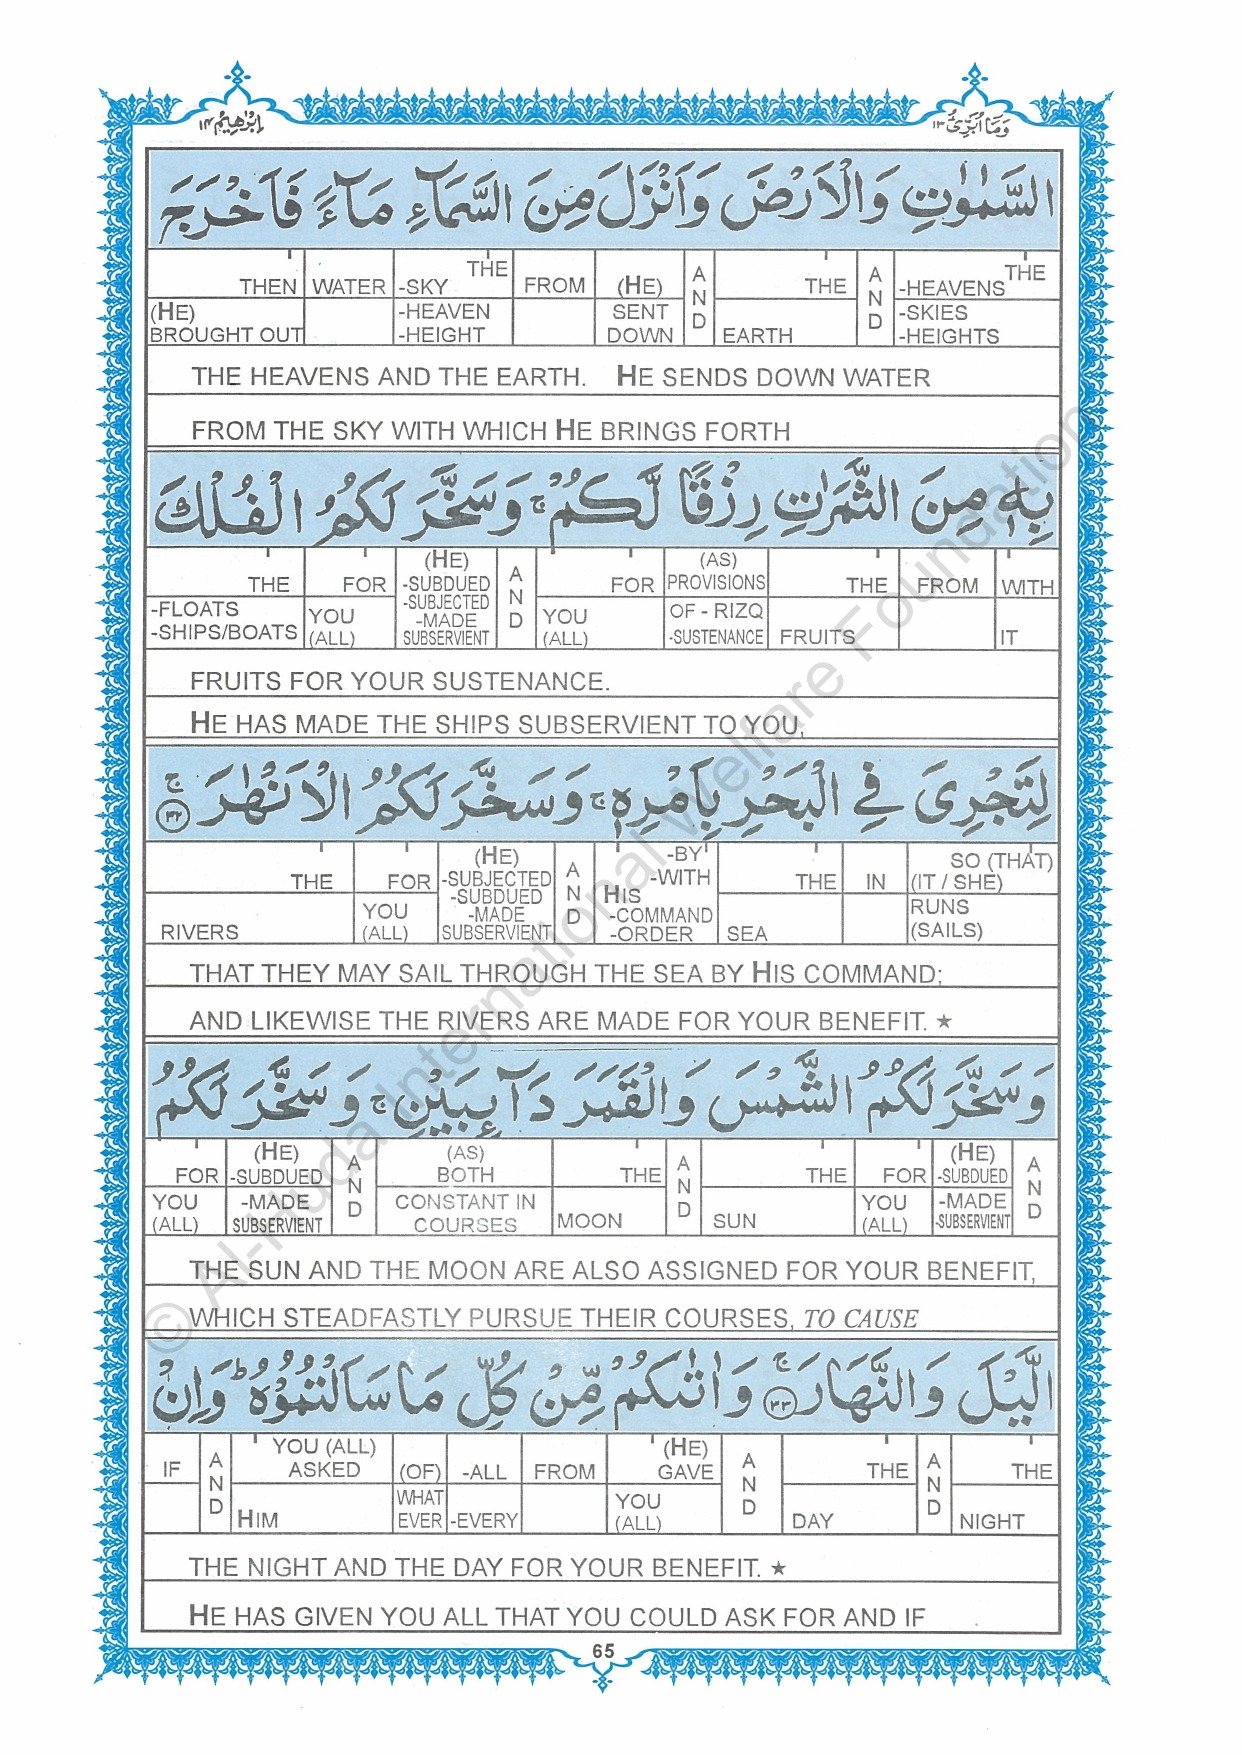 وَمَآ اُبَرِّئُ ١٣
اِبْرٰهِيْمُ ١٤
السَّمٰوٰتِ وَالْاَرْضَ وَاَنْزَلَ مِنَ السَّمَآءِ مَآءً فَاَخْرَجَ
THE -HEAVENS -SKIES -HEIGHTS
AND
THE EARTH
AND
(HE) SENT DOWN
FROM
THE -SKY -HEAVEN -HEIGHT
WATER
THEN (HE) BROUGHT OUT
THE HEAVENS AND THE EARTH. HE SENDS DOWN WATER
FROM THE SKY WITH WHICH HE BRINGS FORTH
بِهٖ مِنَ الثَّمَرٰتِ رِزْقًا لَّكُمْ ۚ وَسَخَّرَ لَكُمُ الْفُلْكَ
WITH IT
FROM
THE FRUITS
(AS) PROVISIONS OF - RIZQ -SUSTENANCE
FOR YOU (ALL)
AND
(HE) -SUBDUED -SUBJECTED -MADE SUBSERVIENT
FOR YOU (ALL)
THE -FLOATS -SHIPS/BOATS
FRUITS FOR YOUR SUSTENANCE.
HE HAS MADE THE SHIPS SUBSERVIENT TO YOU,
لِتَجْرِىَ فِى الْبَحْرِ بِاَمْرِهٖ ۚ وَسَخَّرَ لَكُمُ الْاَنْهٰرَ ۚ ٣٢
SO (THAT) (IT / SHE) RUNS (SAILS)
IN
THE SEA
-BY -WITH HIS -COMMAND -ORDER
AND
(HE) -SUBJECTED -SUBDUED -MADE SUBSERVIENT
FOR YOU (ALL)
THE RIVERS
THAT THEY MAY SAIL THROUGH THE SEA BY HIS COMMAND;
AND LIKEWISE THE RIVERS ARE MADE FOR YOUR BENEFIT. ★
وَسَخَّرَ لَكُمُ الشَّمْسَ وَالْقَمَرَ دَآئِبَيْنِ ۚ وَسَخَّرَ لَكُمُ
AND
(HE) -SUBDUED -MADE -SUBSERVIENT
FOR YOU (ALL)
THE SUN
AND
THE MOON
(AS) BOTH CONSTANT IN COURSES
AND
(HE) -SUBDUED -MADE SUBSERVIENT
FOR YOU (ALL)
THE SUN AND THE MOON ARE ALSO ASSIGNED FOR YOUR BENEFIT,
WHICH STEADFASTLY PURSUE THEIR COURSES, TO CAUSE
الَّيْلَ وَالنَّهَارَ ۚ ٣٣ وَاٰتٰىكُمْ مِّنْ كُلِّ مَا سَاَلْتُمُوْهُ ؕ وَاِنْ
THE NIGHT
AND
THE DAY
AND
(HE) GAVE YOU (ALL)
FROM
-ALL -EVERY
(OF) WHAT EVER
YOU (ALL) ASKED HIM
AND
IF
THE NIGHT AND THE DAY FOR YOUR BENEFIT. ★
HE HAS GIVEN YOU ALL THAT YOU COULD ASK FOR AND IF
65
© Al-Huda International Welfare Foundation